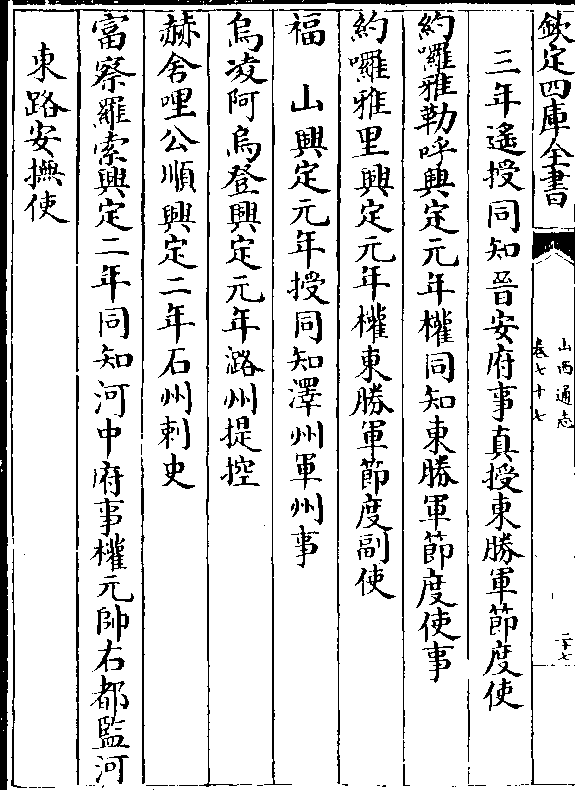 欽定四庫全書
山西通志
卷七十七
二十七
三年遙授同知晉安府事真授東勝軍節度使
約囉雅勒呼興定元年權同知東勝軍節度使事
約囉雅里興定元年權東勝軍節度副使
福　山興定元年授同知澤州軍州事
烏凌阿烏登興定元年潞州提控
赫舍哩公順興定二年石州刺史
富察羅索興定二年同知河中府事權元帥右都監河
東路安撫使